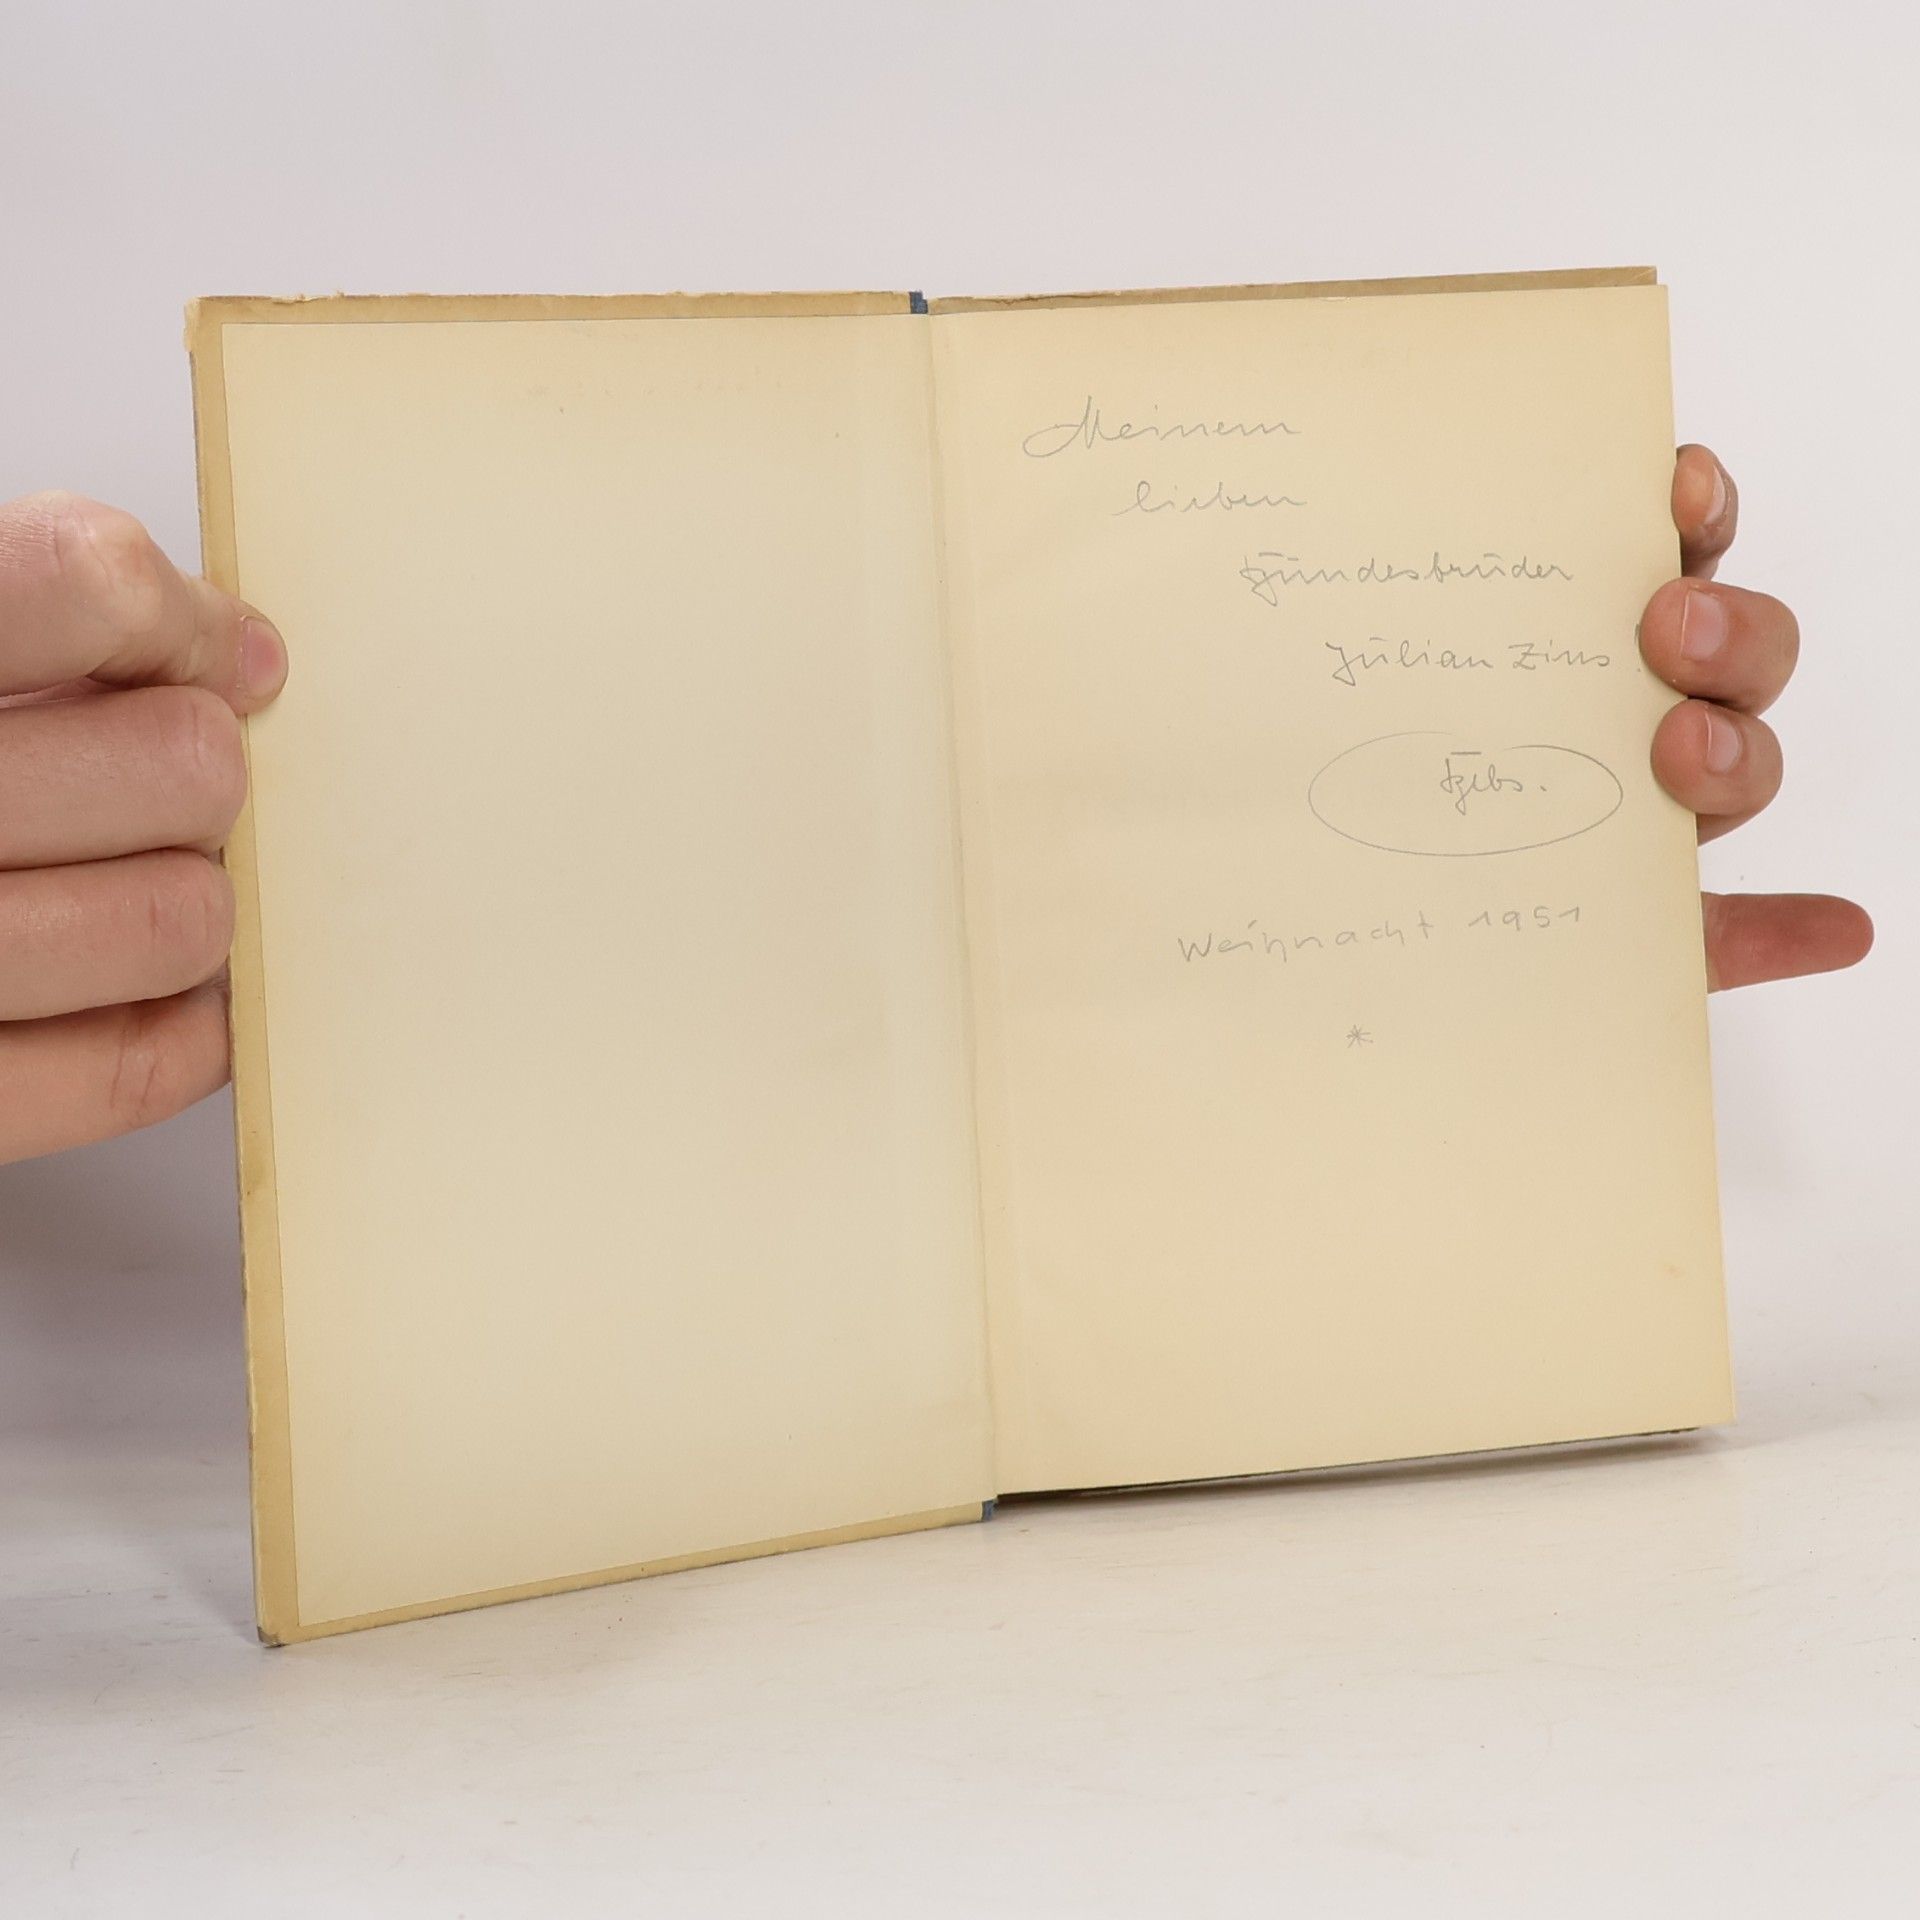 Meinem
lieben
Bundesbruder
Julian Zins!
Weihnacht 1951
*